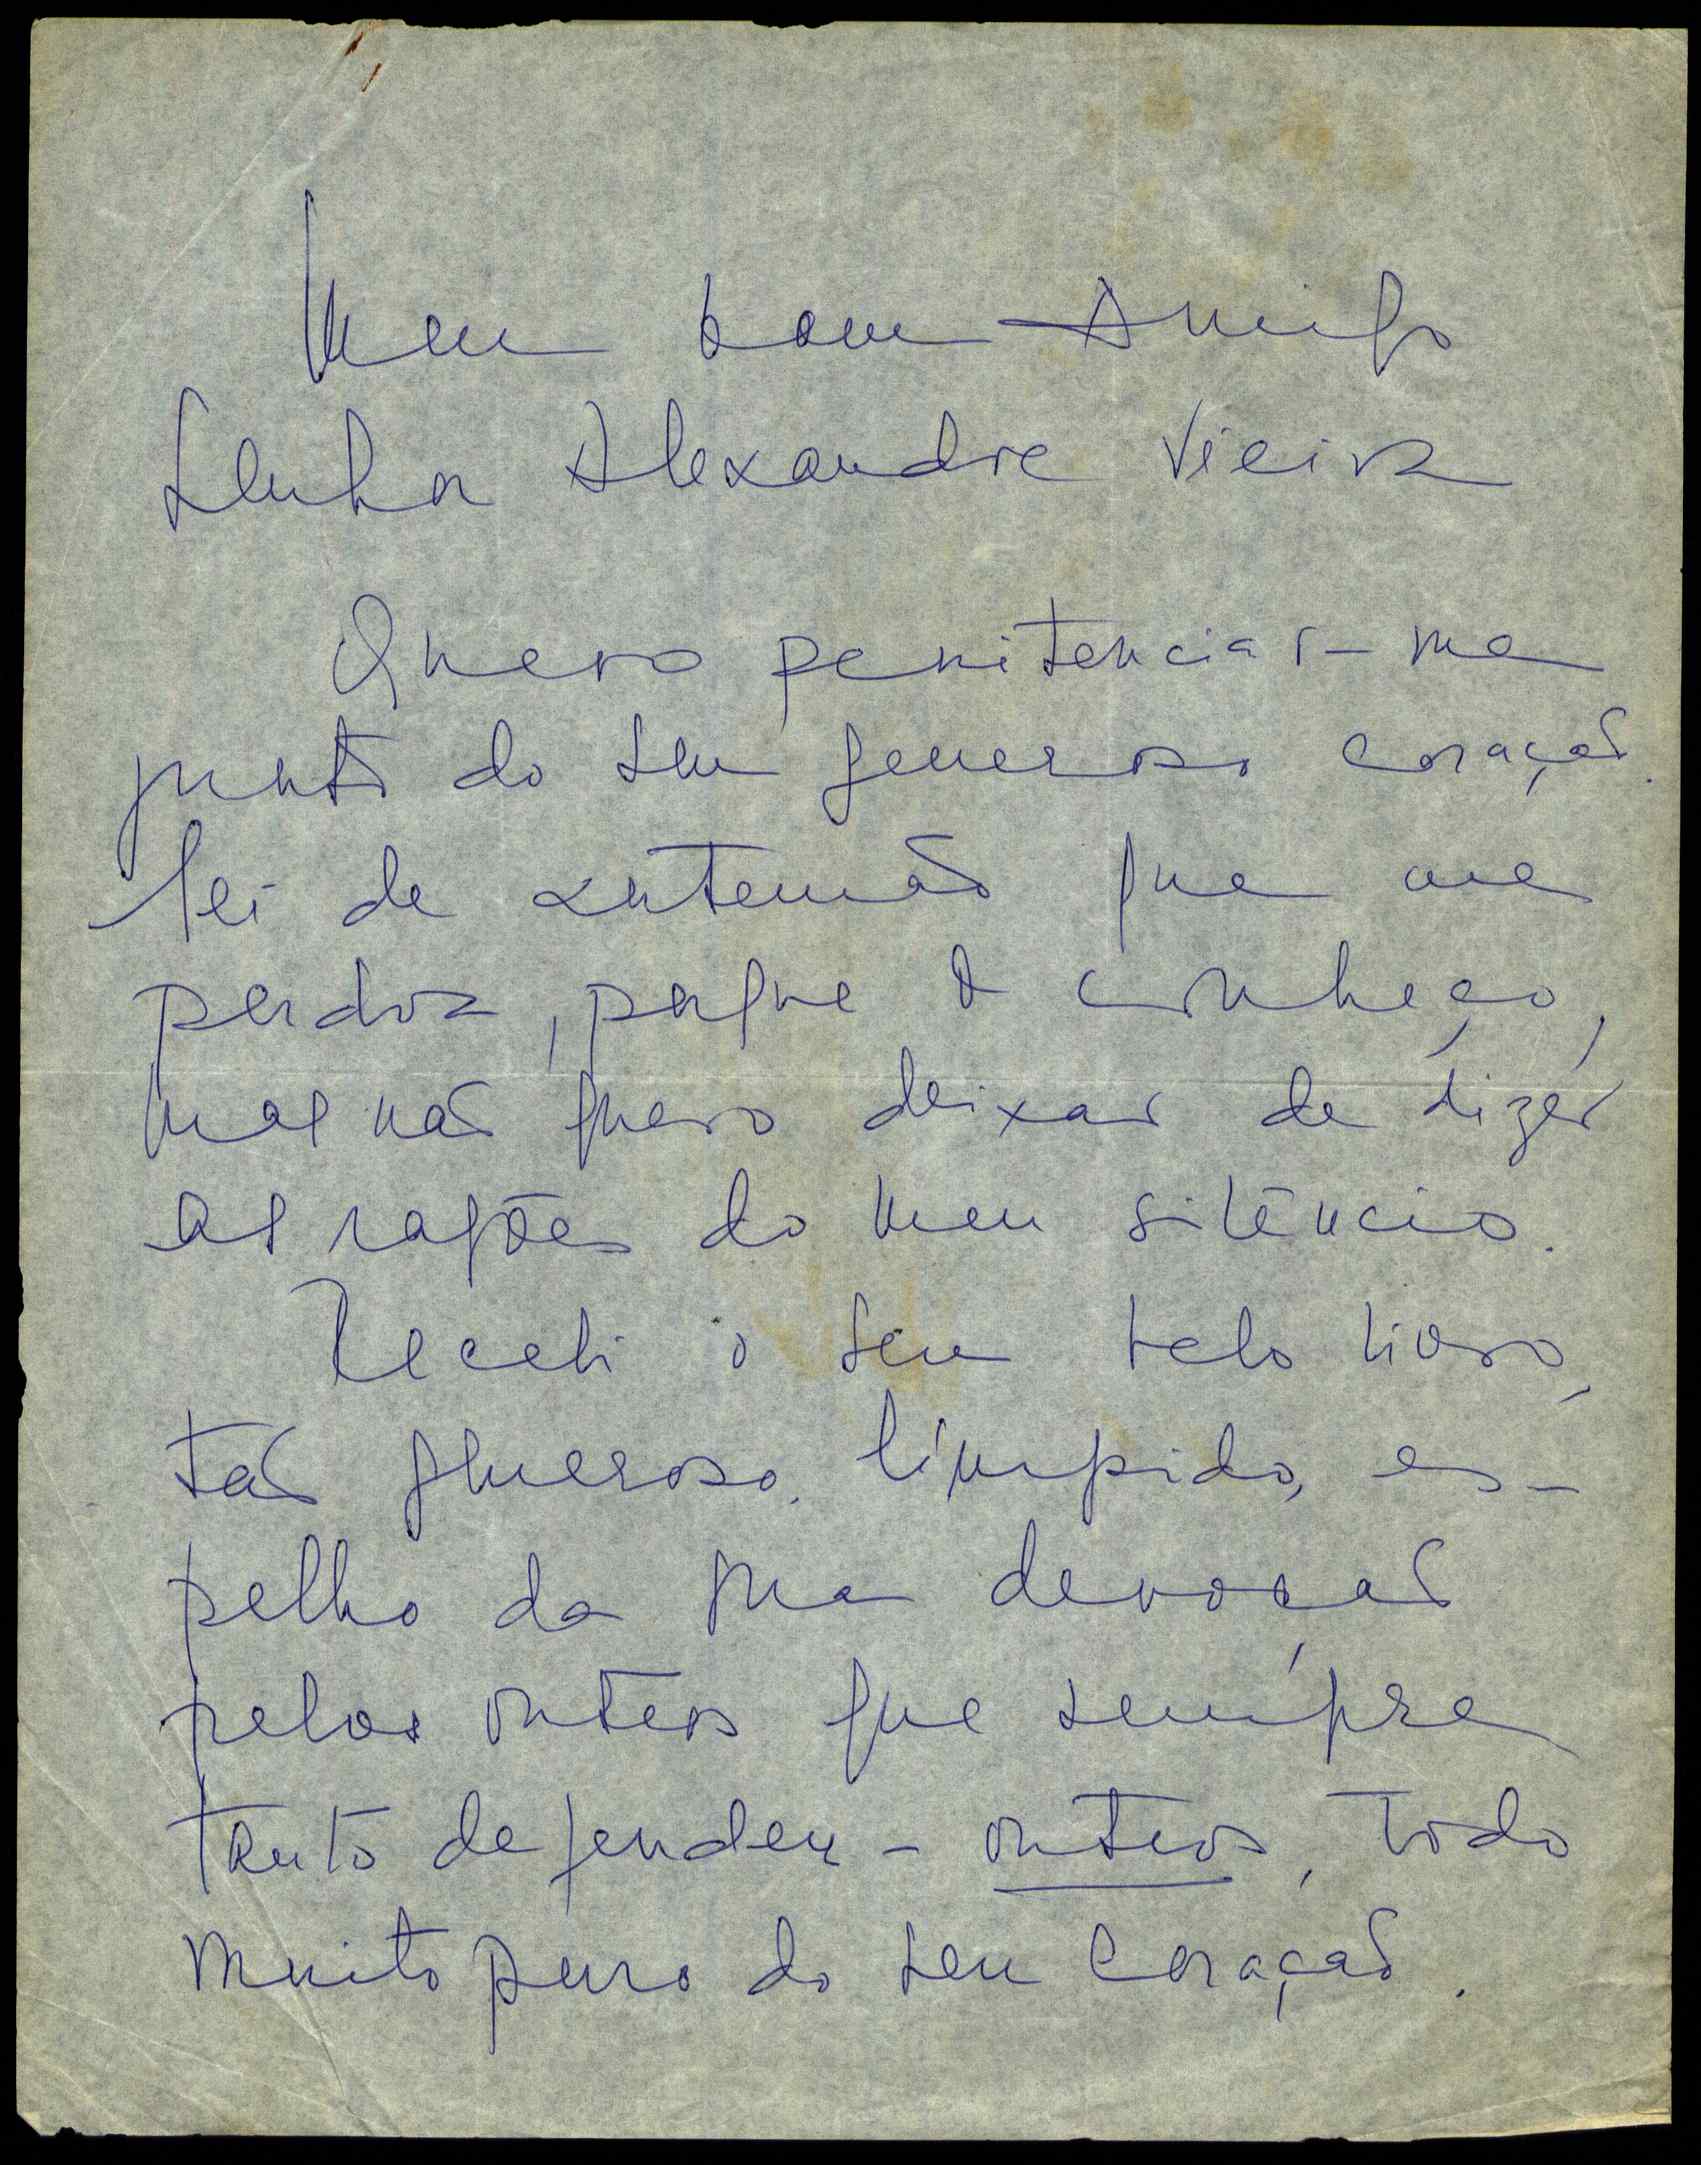 Meu bom Amigo
Senhor Alexandre Vieira
Quero penitenciar-me
junto do seu generoso coração.
Sei de antemão que me
perdoa, porque o conheço,
mas não quero deixar de dizer
as razões do meu silêncio.
Recebi o seu belo livro,
tão generoso, límpido, es-
pelho da sua devoção
pelos outros que sempre
tanto defendeu - outros, todo
muito puro do seu coração.